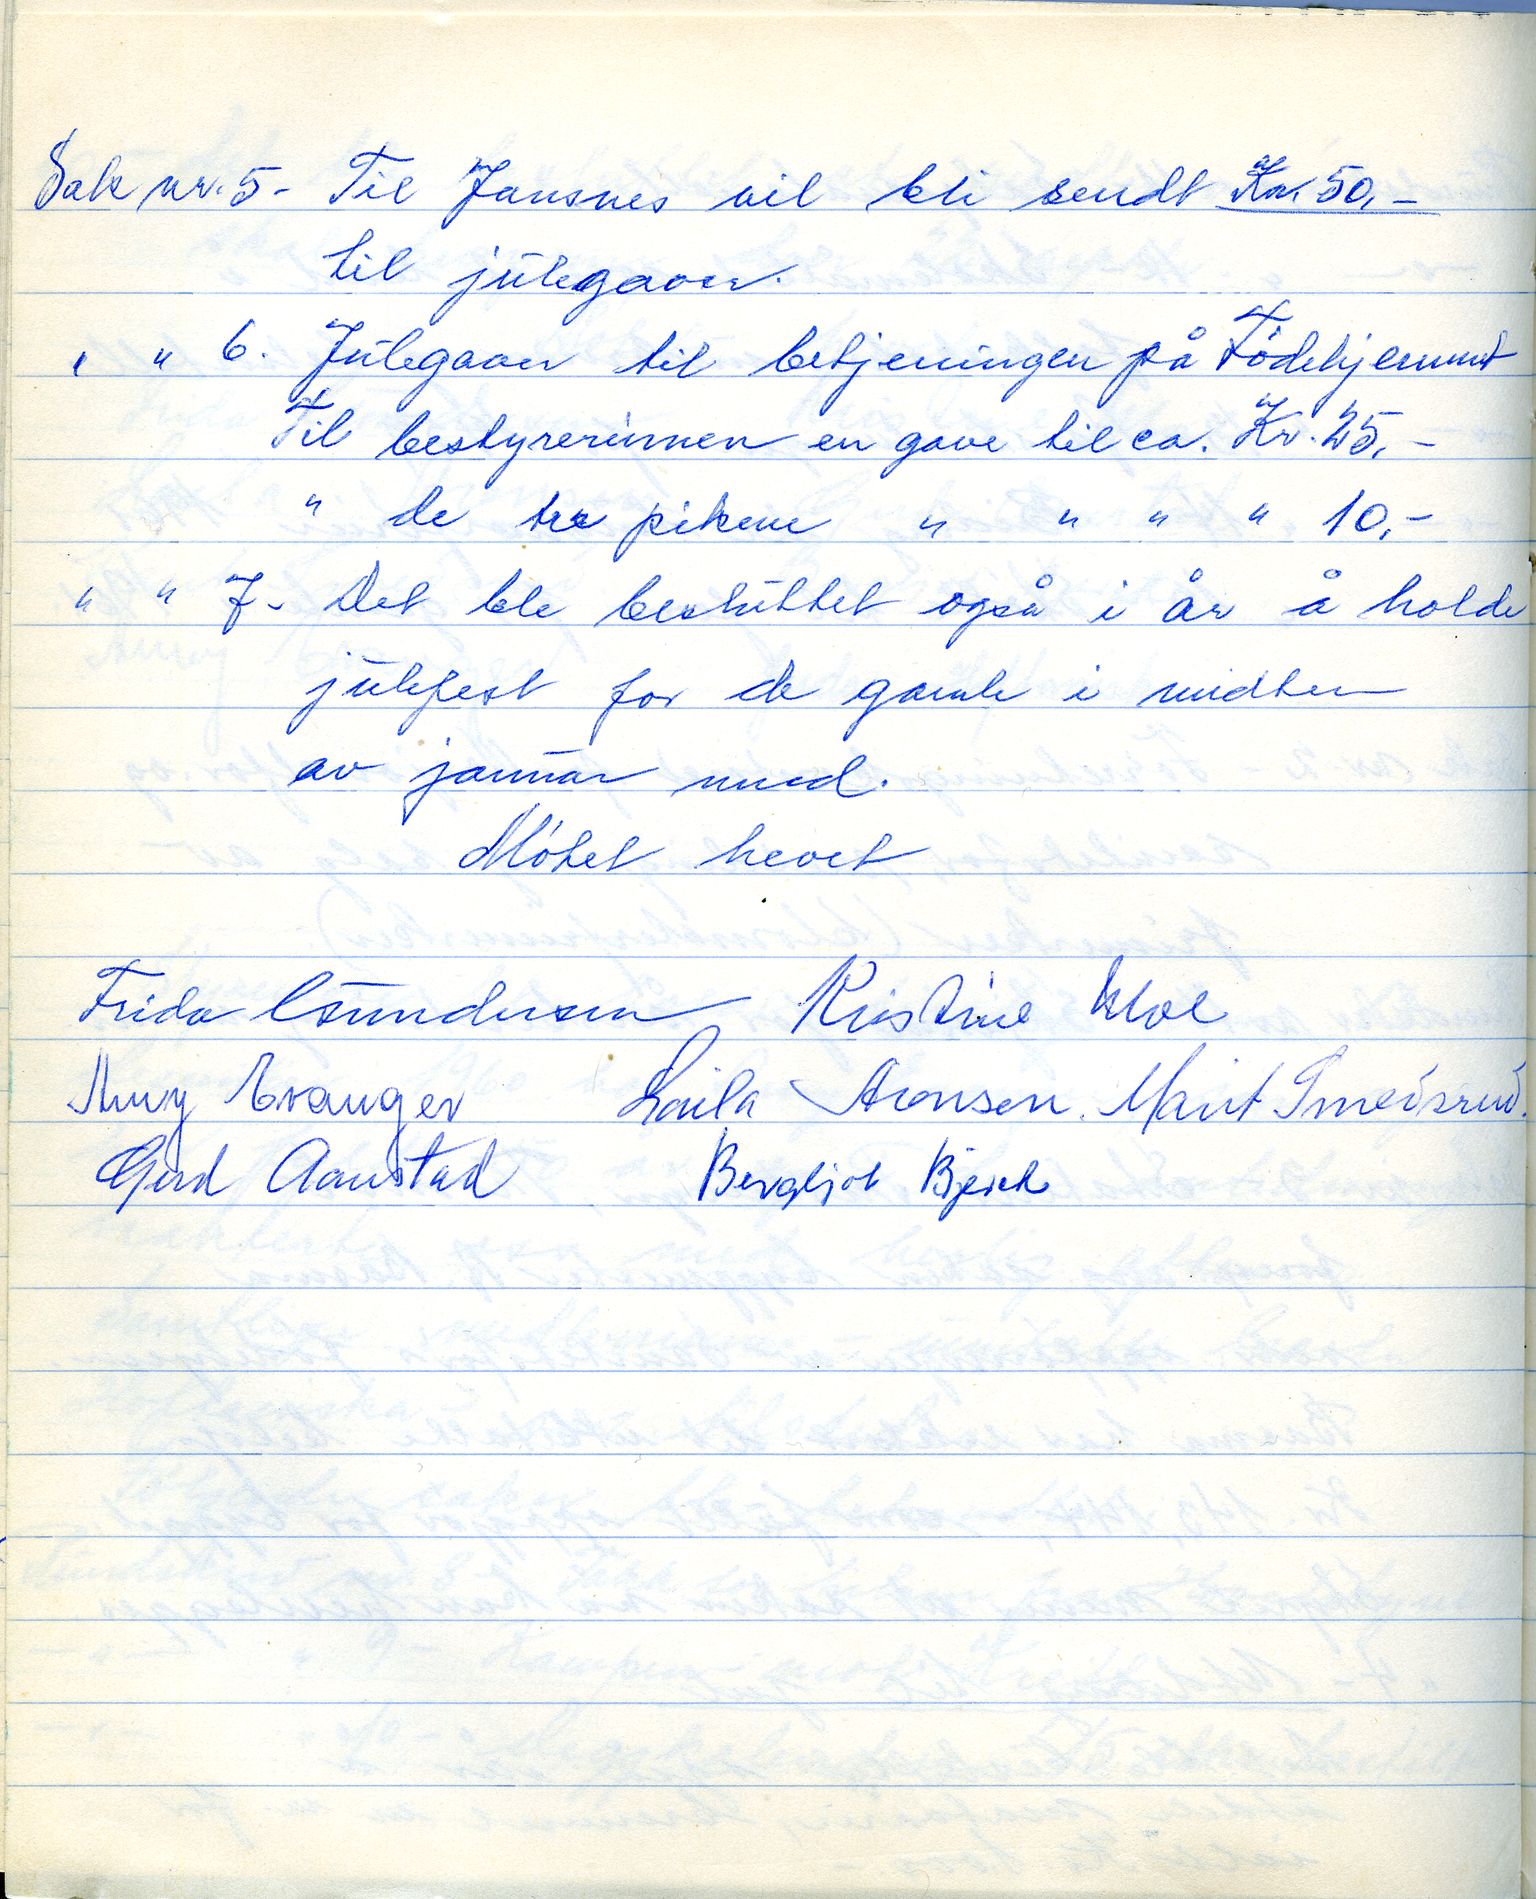 Sak nr. 5- Til Jansnes vil bli sendt Kr. 50,-
til julegaver.
" " 6. Julegaver til betjeningen på Fødehjemmet
Til bestyrerinnen en gave til ca. Kr. 25,-
" de tre pikene " " " " 10,-
" " 7- Det ble besluttet også i år å holde
julefest for de gamle i midten
av januar mnd.
Møtet hevet
Frida Gundersen Kristine Moe
Amy Evanger Laila Aronsen. Marit Smedsrud.
Gerd Aanstad Bergljot Bjerck